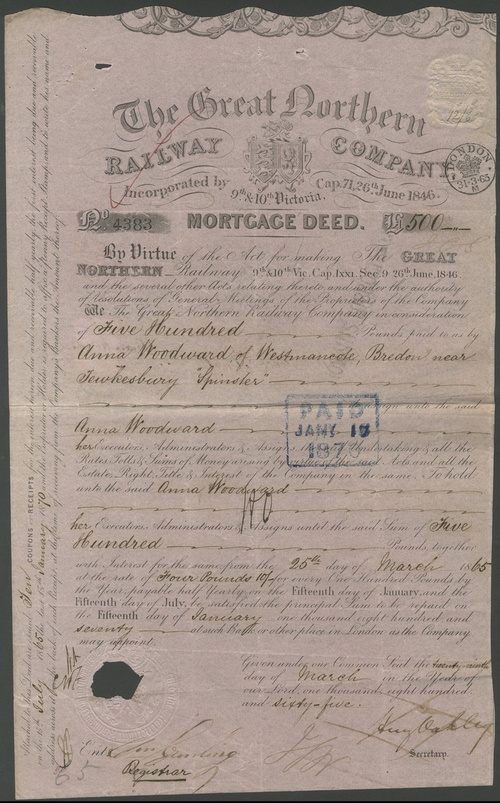 The Great Northern
RAILWAY COMPANY
Incorporated by 9th & 10th Victoria, Cap. 71, 26th June 1846.
LONDON
31·3·65
No 4383 MORTGAGE DEED. £500
By Virtue of the Act for making The GREAT
NORTHERN Railway 9th & 10th Vic. Cap. lxxi. Sec. 9 26th June, 1846
and the several other Acts relating thereto and under the authority
of Resolutions of General Meetings of the Proprietors of the Company
We The Great Northern Railway Company in consideration
of Five Hundred Pounds paid to us by
Anna Woodward, of Westmancote, Bredon near
Tewkesbury "Spinster"
assign unto the said
Anna Woodward
PAID
JANY 15
187
her Executors, Administrators & Assigns the Undertaking & all the
Rates, Tolls & Sums of Money arising by virtue of the said Acts and all the
Estate, Right, Title & Interest of the Company in the same. To hold
unto the said Anna Woodward
her Executors, Administrators & Assigns until the said Sum of Five
Hundred Pounds, together
with Interest for the same from the 25th day of March 1865
at the rate of Four Pounds 10/- for every One Hundred Pounds by
the Year, payable half Yearly, on the Fifteenth day of January, and the
Fifteenth day of July, be satisfied, the principal Sum to be repaid on
the Fifteenth day of January one thousand eight hundred and
seventy at such Bank or other place in London as the Company
may appoint.
Given under our Common Seal the twenty ninth
day of March in the Year of
our Lord, one thousand eight hundred
and sixty-five.
Entd
Registrar
Hny Oakley
Secretary.
65
Ten COUPONS - RECEIPTS